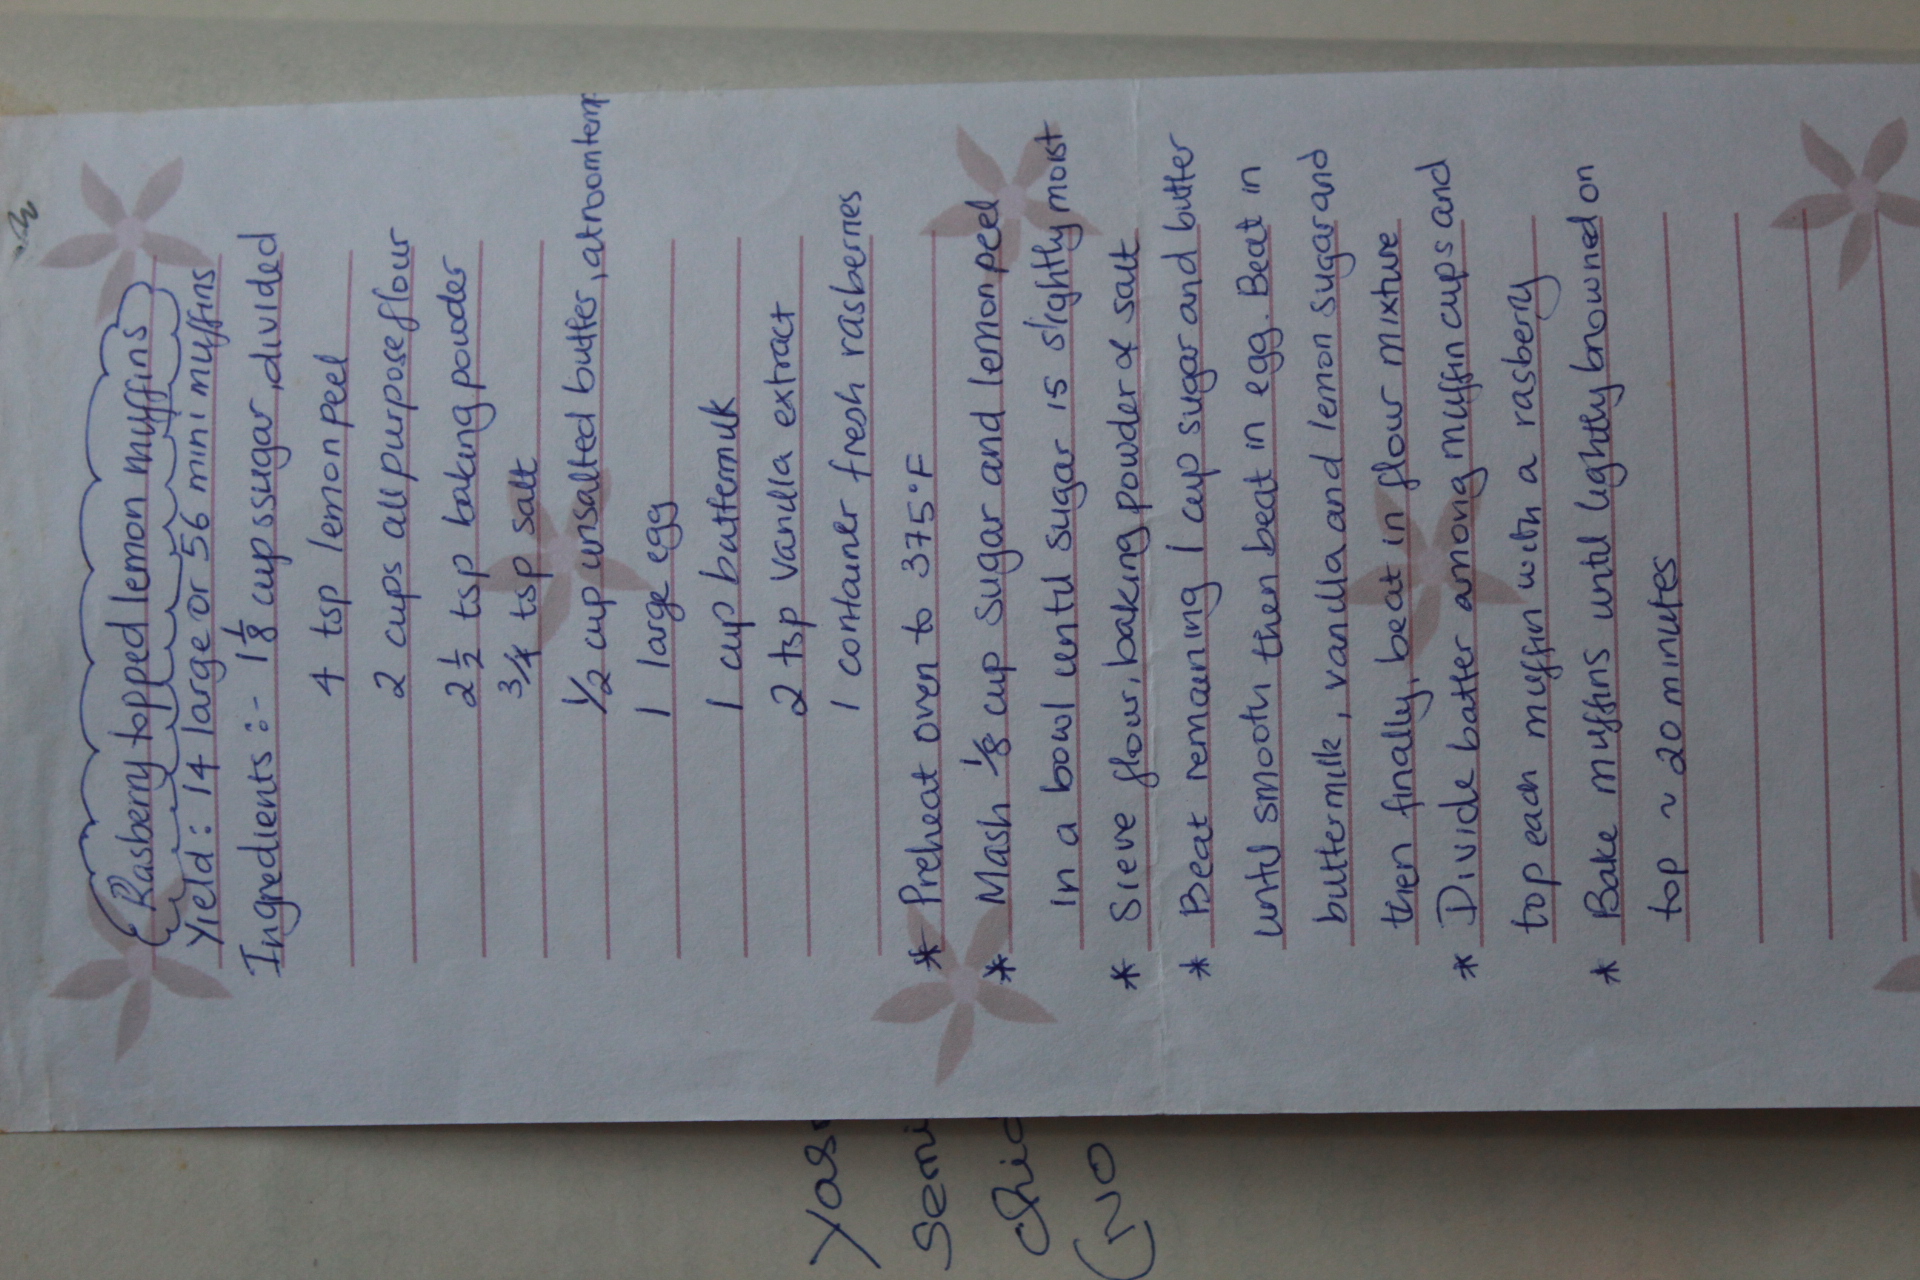 Rasberry topped lemon muffins
Yield: 14 large or 56 mini muffins
Ingredients:- 1 1/8 cups sugar, divided
4 tsp lemon peel
2 cups all purpose flour
2 1/2 tsp baking powder
3/4 tsp salt
1/2 cup unsalted butter, at room temp
1 large egg
1 cup buttermilk
2 tsp vanilla extract
1 container fresh rasberries
* Preheat oven to 375°F
* Mash 1/8 cup sugar and lemon peel
in a bowl until sugar is slightly moist
* Sieve flour, baking powder & salt
* Beat remaining 1 cup sugar and butter
until smooth then beat in egg. Beat in
buttermilk, vanilla and lemon sugar and
then finally, beat in flour mixture
* Divide batter among muffin cups and
top each muffin with a rasberry
* Bake muffins until lightly browned on
top ~ 20 minutes
Semi
(No